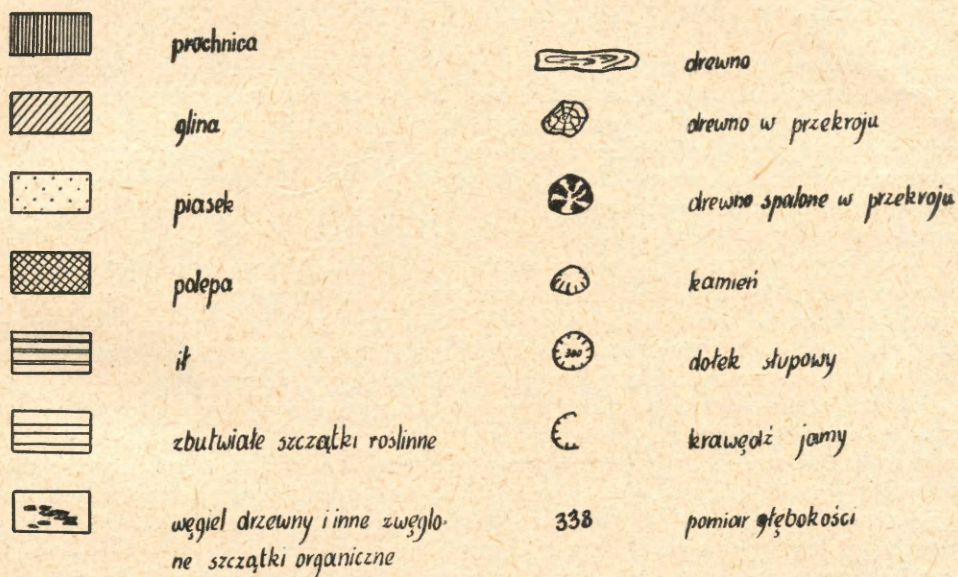 próchnica
glina
piasek
polepa
ił
zbutwiałe szczątki roślinne
węgiel drzewny i inne zwęglo-
ne szczątki organiczne
drewno
drewno w przekroju
drewno spalone w przekroju
kamień
300
dołek słupowy
krawędź jamy
338 pomiar głębokości